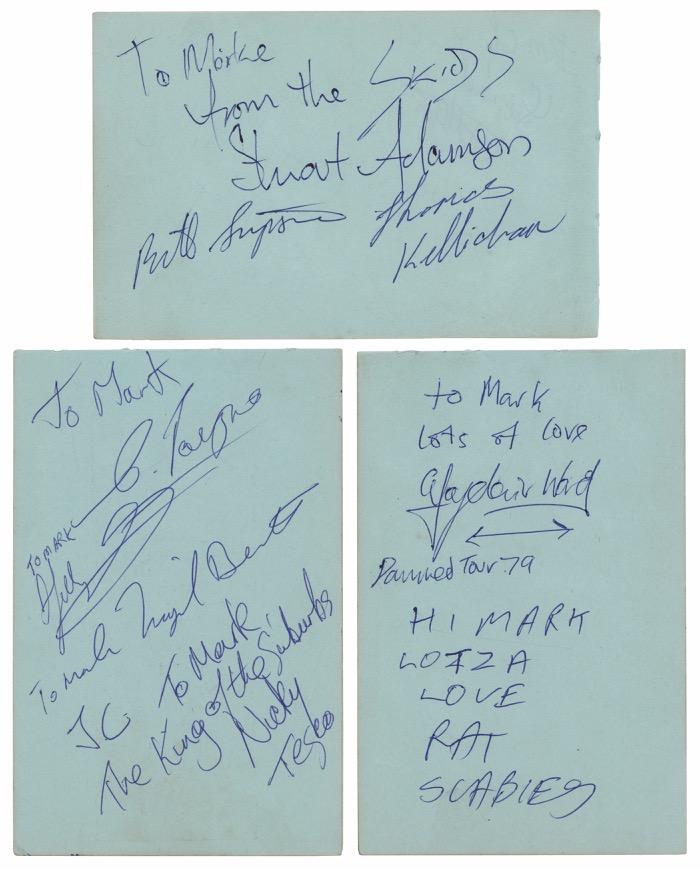 To Marke
from the SKIDS
Stuart Adamson
Simpson Thomas
Kellichan
To Mark
C. Payne
TO MARK
To mark Nigel Bennett
JC To Mark
The King of the Suburbs
Nicky
Tesco
to Mark
Lots of Love
Algy Ward
Damned Tour 79
HI MARK
LOTZA
LOVE
RAT
SCABIES